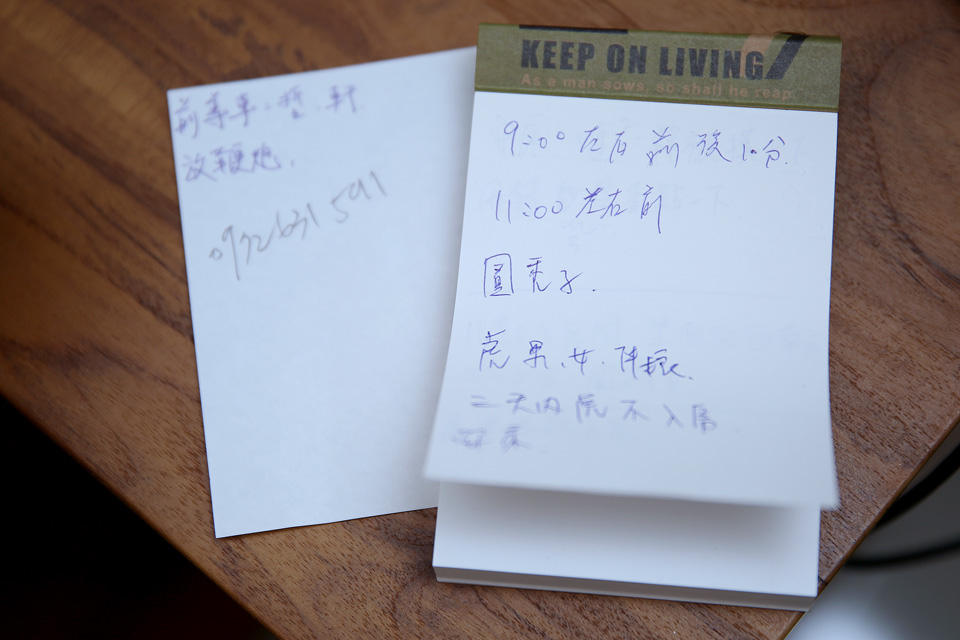 前導車.哲.軒
放鞭炮.
0932631591
KEEP ON LIVING
As a man sows, so shall he reap.
9:00 左右前後10分.
11:00 左右前
圓凳子.
虎男.女.
二天內虎不入房